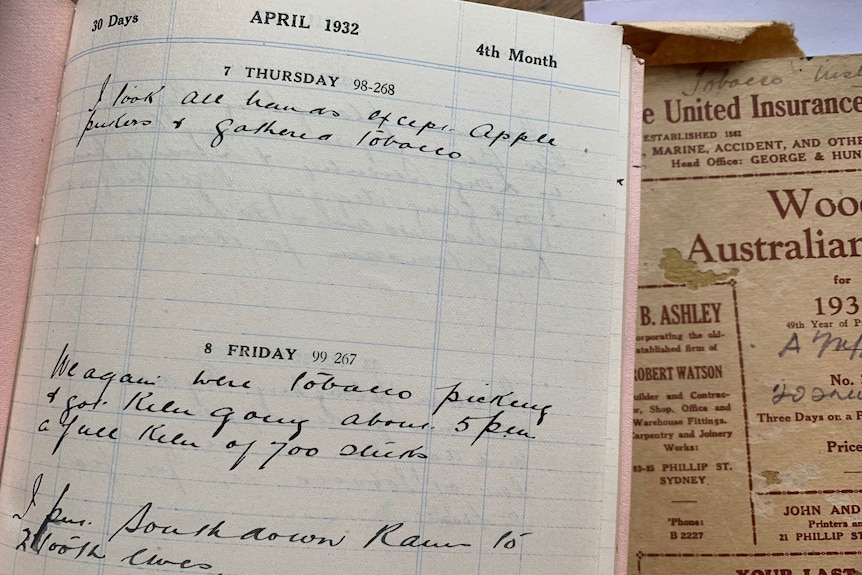 30 Days
APRIL 1932
4th Month
7 THURSDAY 98-268
I took all hands except Apple
& gathered Tobacco
8 FRIDAY 99 267
We again were Tobacco picking
& got Kiln going about 5 pm
a full Kiln of 700 sticks
I put Southdown Rams to
2 tooth Ewes
Tobacco
e United Insurance
ESTABLISHED 1862
, MARINE, ACCIDENT, AND OTHE
Head Office: GEORGE & HUN
Woo
Australian
for
193
49th Year of P
No.
Three Days on a P
Price
JOHN AND
Printers an
21 PHILLIP S
B. ASHLEY
orporating the old-
stablished firm of
ROBERT WATSON
uilder and Contrac-
r, Shop, Office and
Warehouse Fittings.
arpentry and Joinery
Works:
83-85 PHILLIP ST.
SYDNEY
'Phone:
B 2227
YOUR LAST